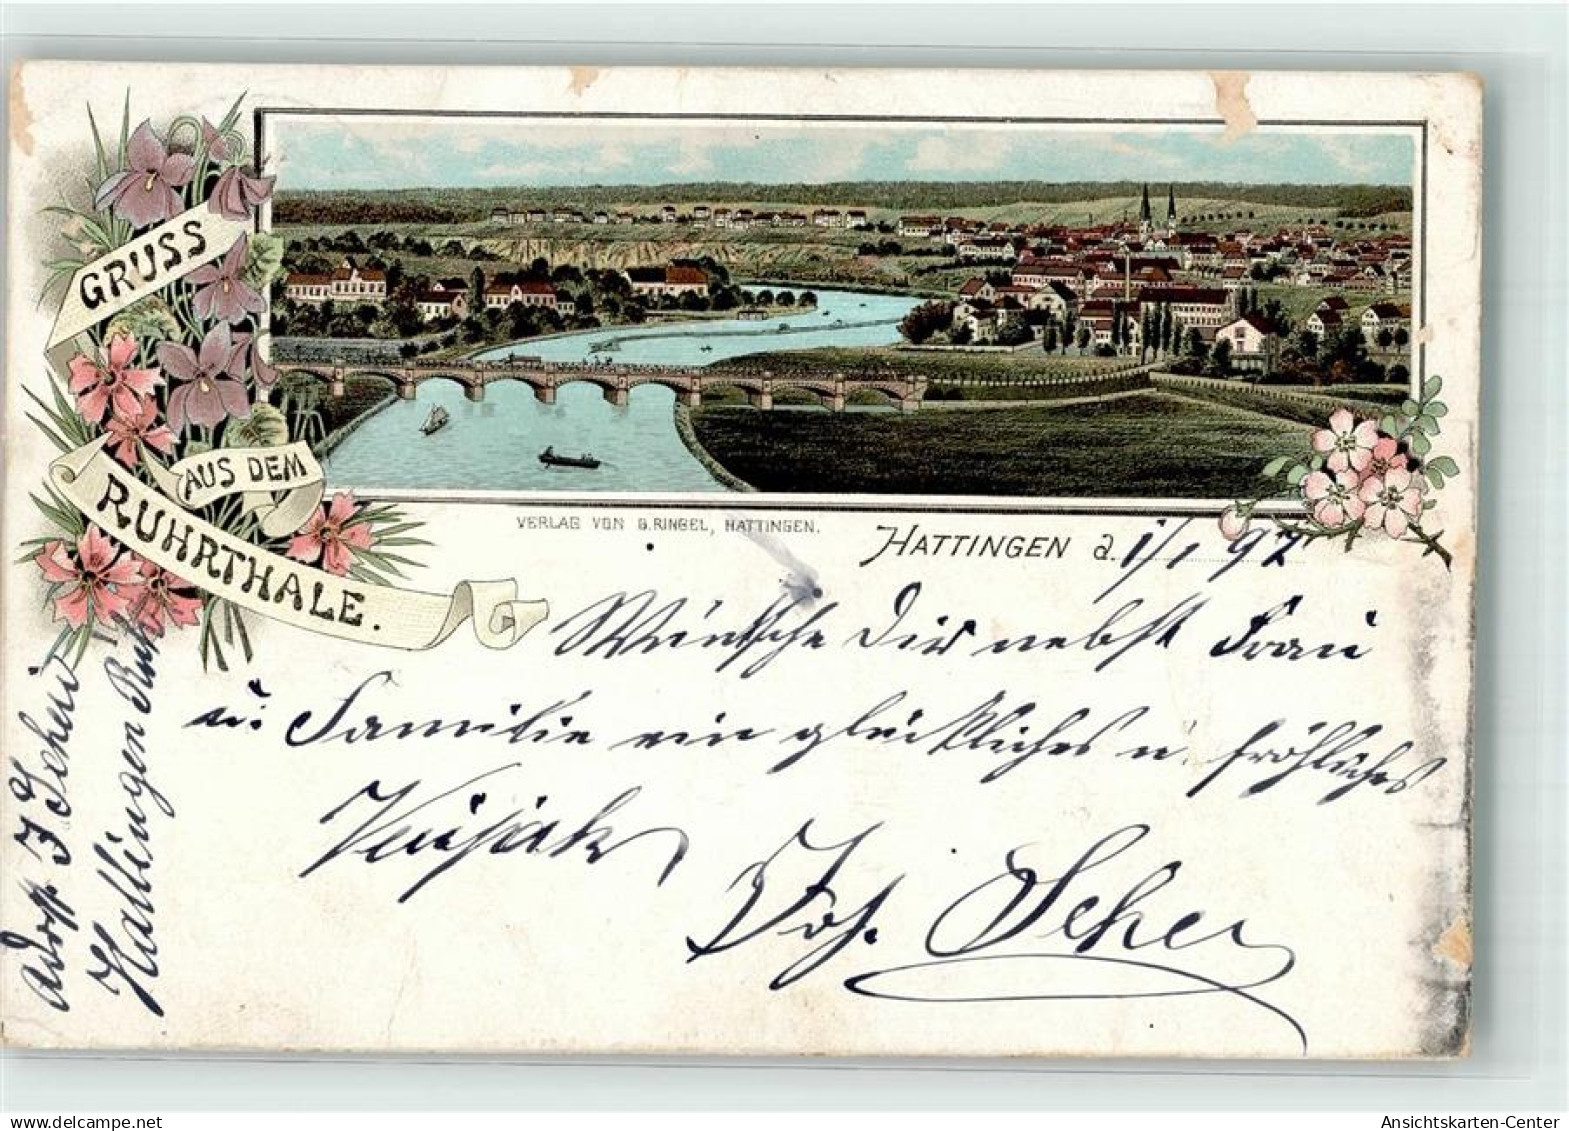 GRUSS
AUS DEM
RUHRTHALE.
VERLAG VON G. RINGEL, HATTINGEN.
HATTINGEN d. 1/1 97
Wünsche Dir nebst Frau
u. Familie ein glückliches u. fröhliches
Neujahr
Joh. Scher
Hattingen Ruhr
Ansichtskarten-Center